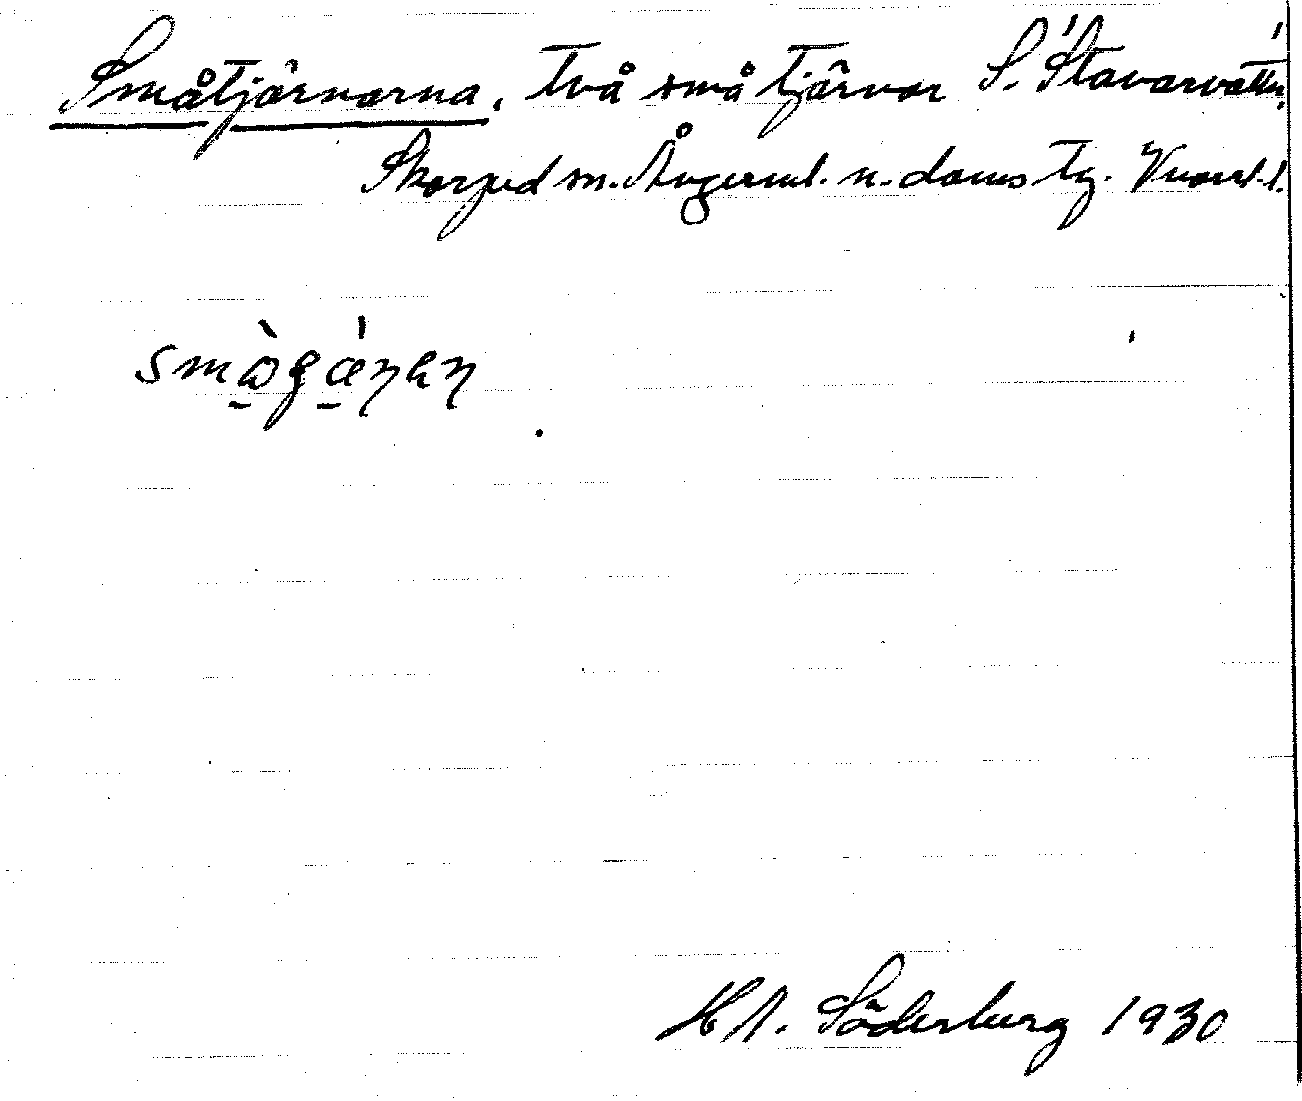 Småtjärnarna, två små tjärnar S. Stavarvattn,
Skorped sn. Ångerml. n. doms tg. Vnorrl. l.
H A. Söderberg 1930